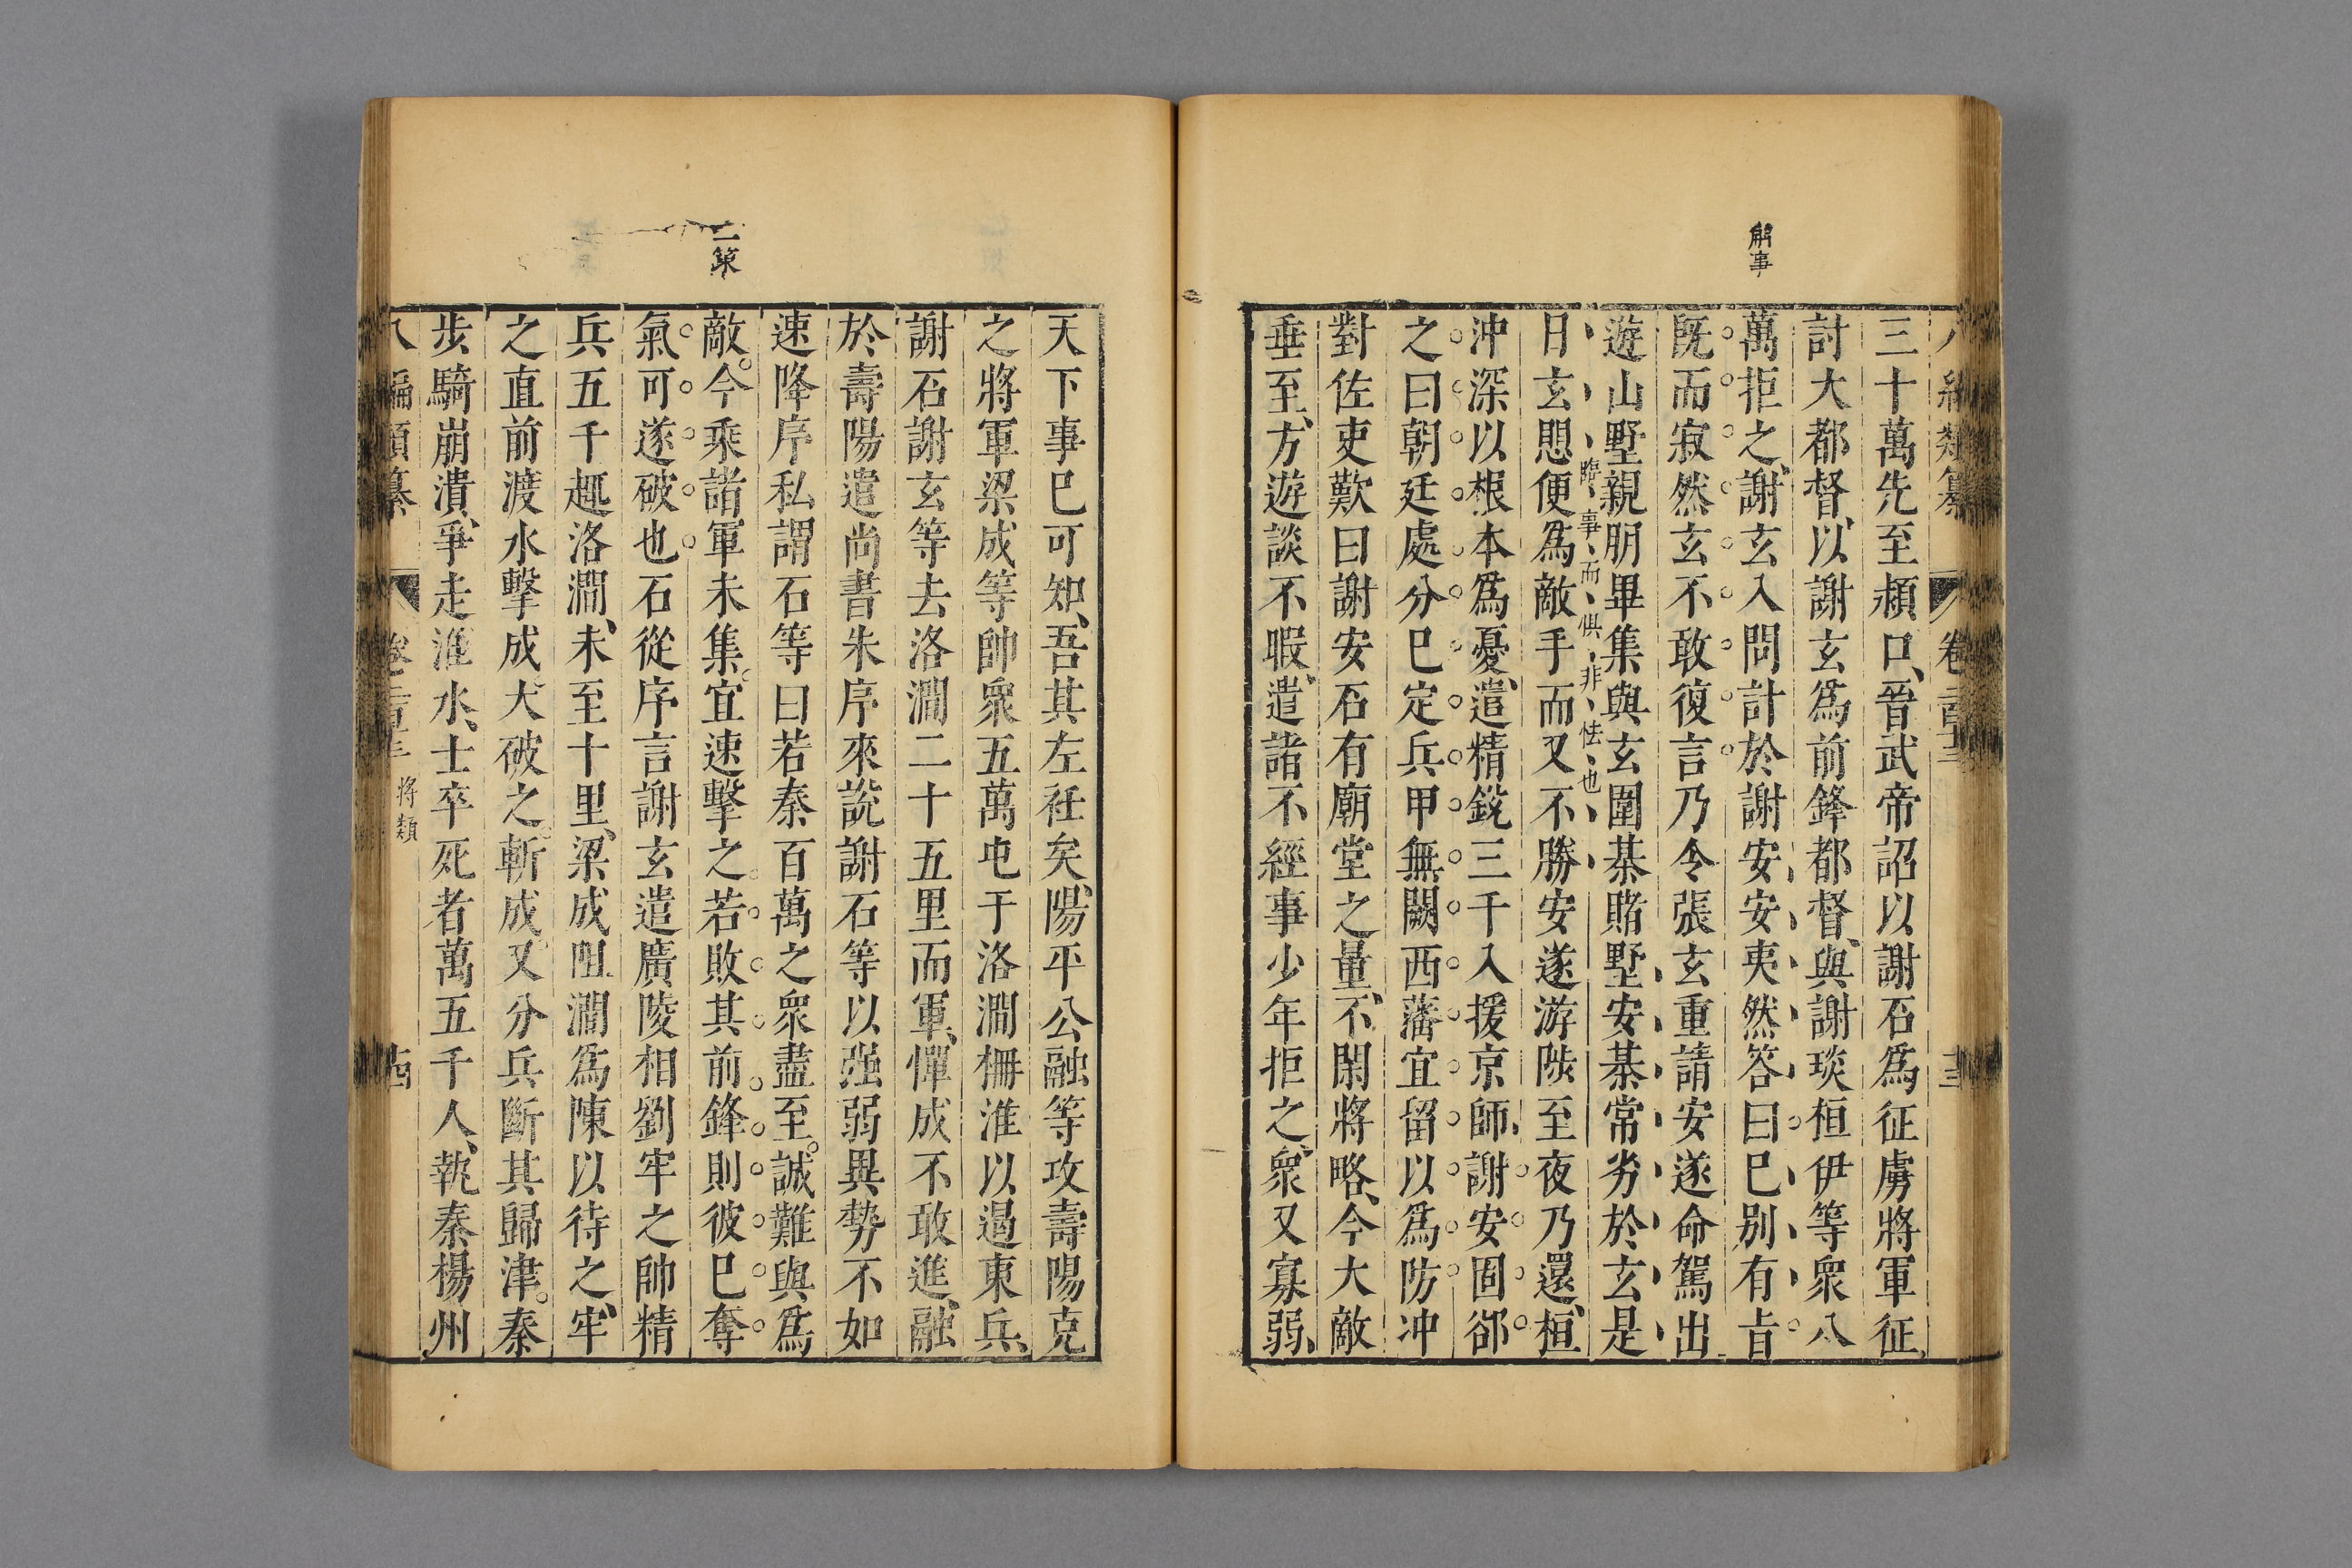 解事
八編類纂
卷
三十萬先至潁口、晉武帝詔以謝石爲征虜將軍征
討大都督、以謝玄爲前鋒都督、與謝琰桓伊等衆八
萬拒之、謝玄入問計於謝安安夷然答曰巳别有㫖
既而寂然玄不敢復言乃令張玄重請安遂命駕出
遊山墅親朋畢集與玄圍棊賭墅安棊常劣於玄是
臨事而惧非怯也
日玄愳便爲敵手而又不勝安遂游陟至夜乃還、桓
沖深以根本爲憂、遣精鋭三千入援京師、謝安固郤
之曰朝廷處分巳定兵甲無闕西藩宜留以爲防沖
對佐吏歎曰謝安石有廟堂之量、不閑將略、今大敵
垂至、方遊談不暇、遣諸不經事少年拒之、衆又寡弱、
二策
天下事巳可知、吾其左衽矣、陽平公融等攻壽陽克
之將軍梁成等帥衆五萬屯于洛澗柵淮以遏東兵、
謝石謝玄等去洛澗二十五里而軍、憚成不敢進、融
於壽陽遣尚書朱序來說謝石等以强弱異勢不如
速降序私謂石等曰若秦百萬之衆盡至。誠難與爲
敵。今乘諸軍未集。宜速擊之若敗其前鋒則彼巳奪
氣可遂破也石從序言謝玄遣廣陵相劉牢之帥精
兵五千趣洛澗、未至十里、梁成阻澗爲陳以待之、牢
之直前渡水擊成大破之斬成又分兵斷其歸津。秦
步騎崩潰、爭走淮水、士卒死者萬五千人、執秦楊州
八編類纂
卷
將類